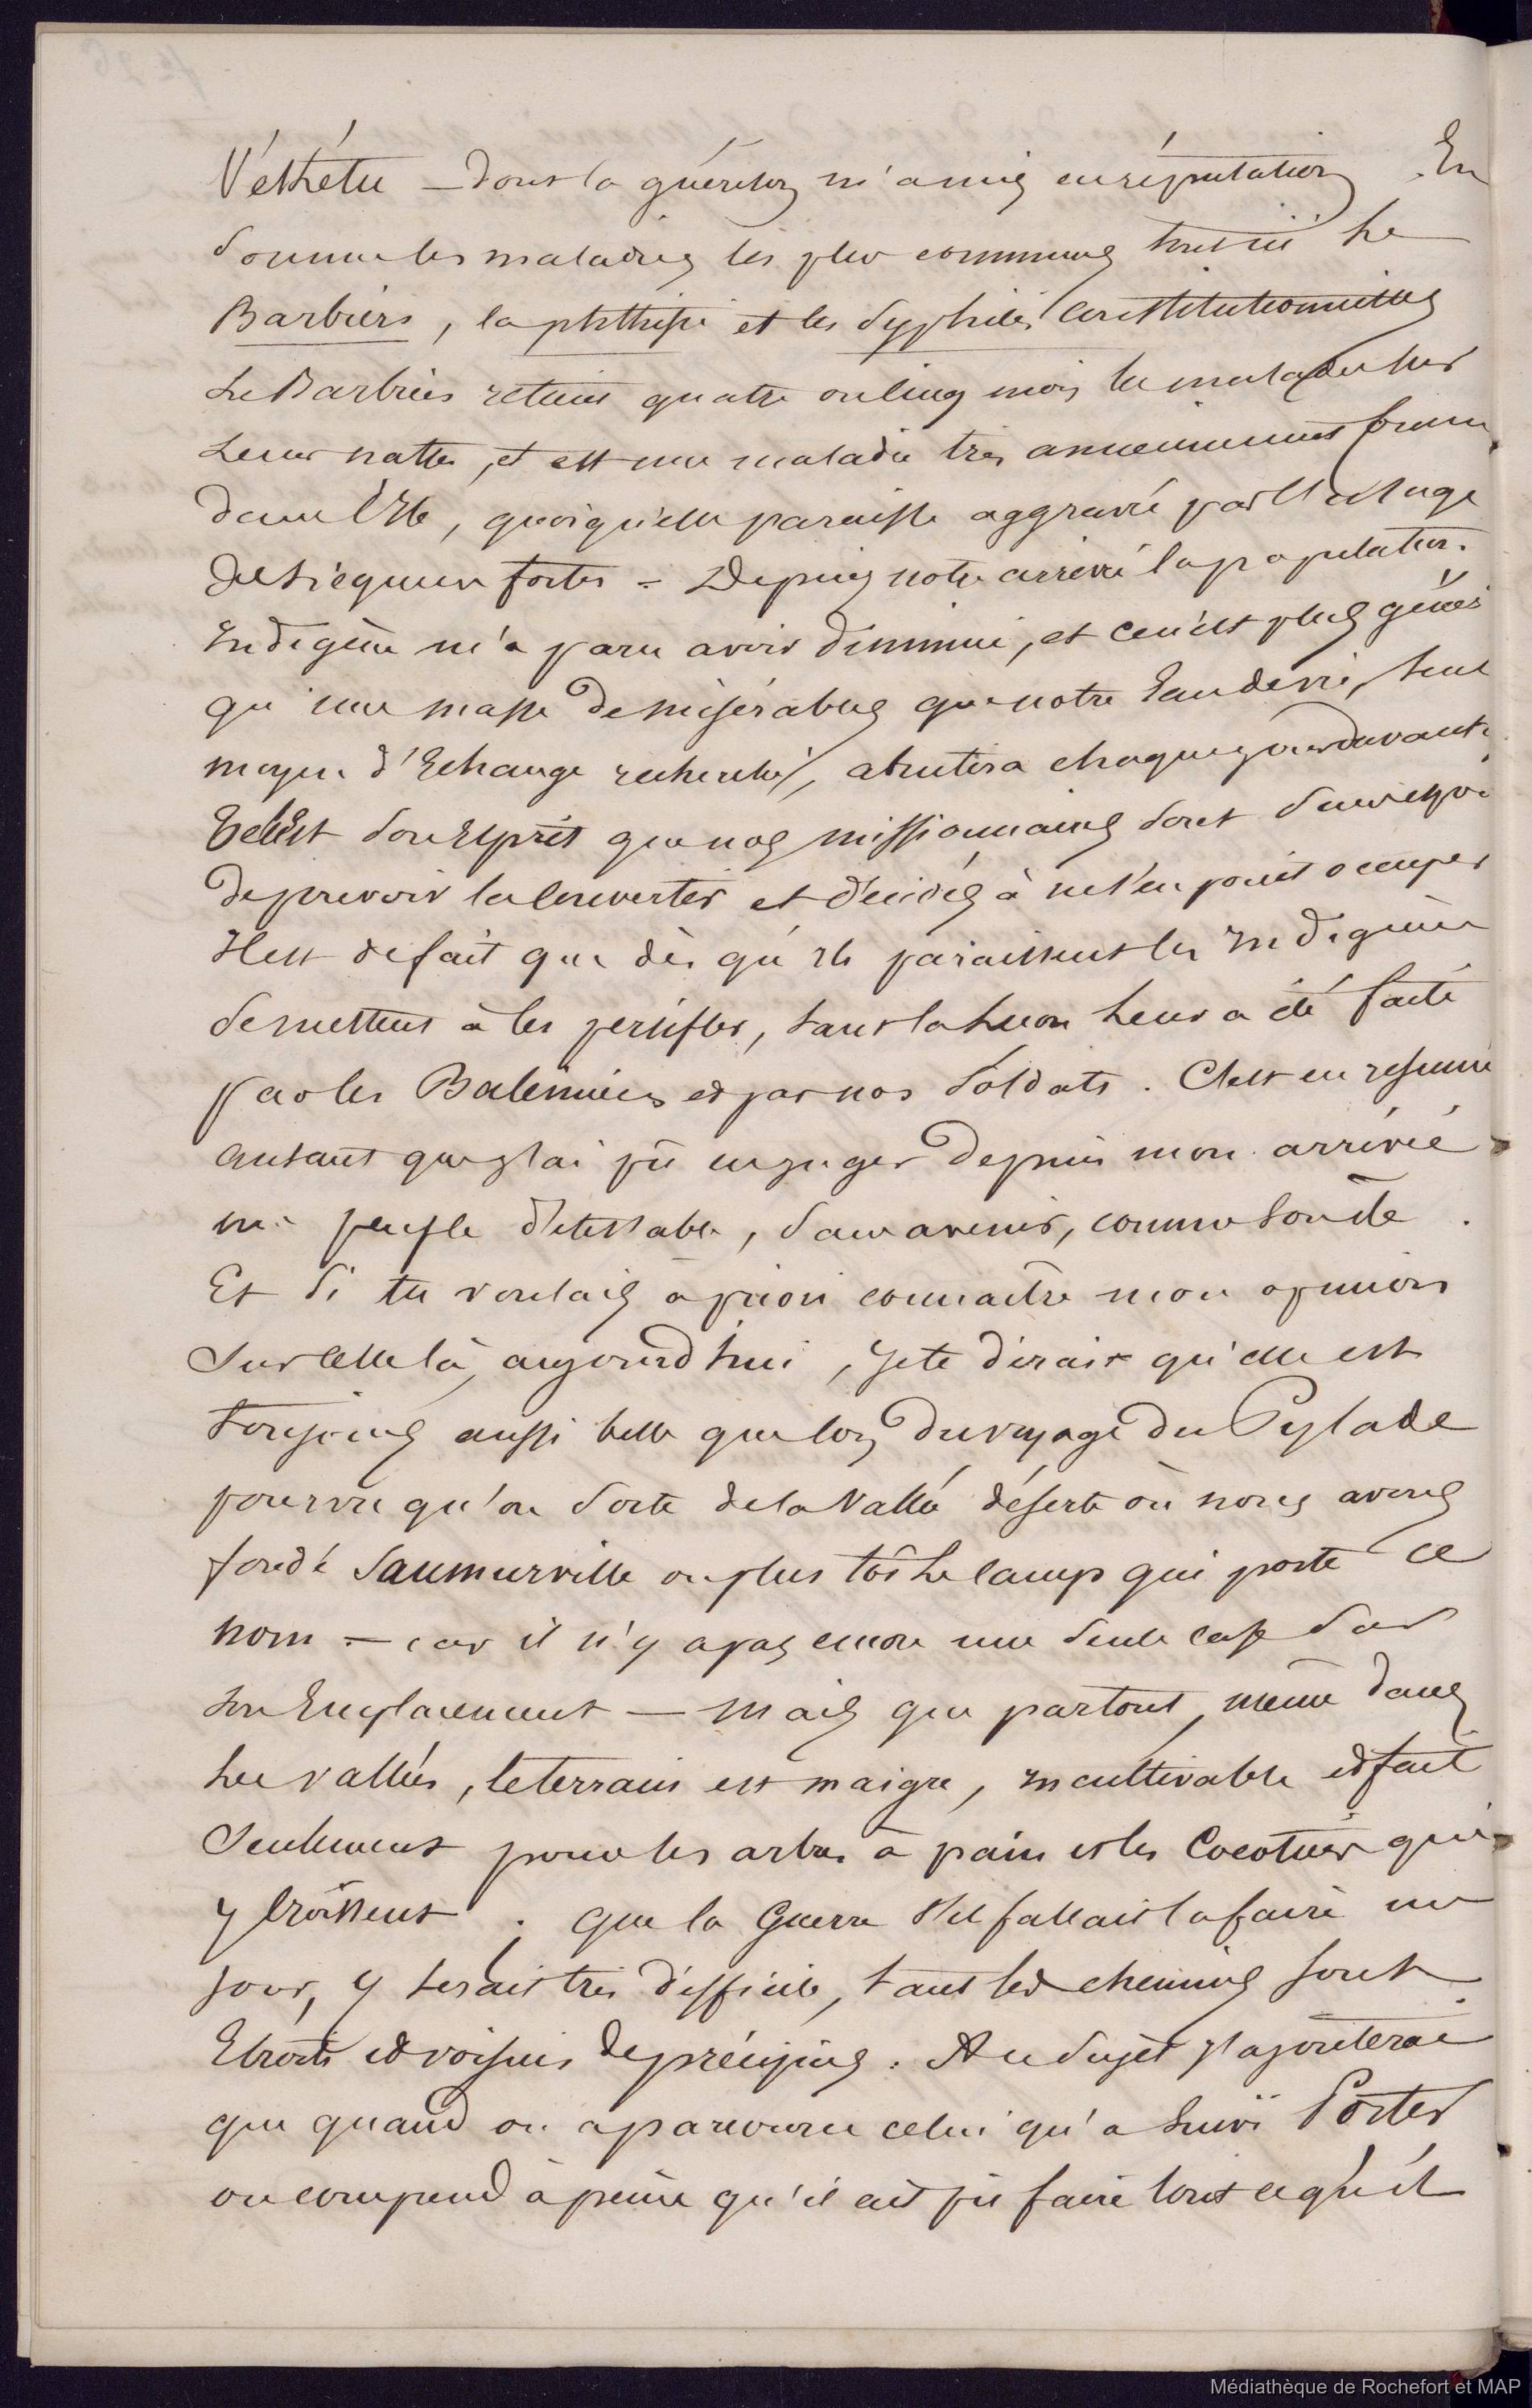 Vékétu — dont la guérison m'a mis en réputation. En
somme les maladies les plus communes sont ici le
Barbiers, la phthisie et les Syphilis Constitutionnelles
Le Barbiers retient quatre ou cinq mois les malades sur
Leurs nattes, et est une maladie très anciennement
dans l'Ile, quoiqu'elle paraisse aggravé par l'usage
des liqueurs fortes — Depuis notre arrivé la population
Indigène m'a paru avoir diminué, et ce n'est plus guères
qu'une masse de misérables que notre Eau de vie, seul
moyen d'Echange recherché, abrutira chaque jour davantage
Tel est son Esprit que nos missionnaires sont
de pouvoir les convertir et décidés à ne s'en point occuper
Il est de fait que dès qu'ils paraissent les Indigènes
se mettent à les persifler, tant la leçon leur a été faite
par les Baleiniers et par nos Soldats. C'est en résumé
autant que j'ai pû en juger depuis mon arrivée
un peuple détestable, sans avenir, comme son île.
Et si tu voulais à priori connaître mon opinion
sur celle là, aujourd'hui, je te dirais qu'elle est
toujours aussi belle que lors du voyage du Pylade
pourvu qu'on sorte de la Vallée déserte où nous avons
fondé Saumurville ou plus tôt le camp qui porte ce
nom — car il n'y a pas encore une seule case sur
son Emplacement — mais que partout, même dans
les vallées, le terrain est maigre, incultivable et fait
seulement pour les arbres à pain et les Cocotiers qui
y Croissent. que la Guerre s'il fallait la faire un
jour, y serait très difficile, tant les chemins sont
Etroits et voisins de précipices. Au sujet j'ajouterai
que quand on a parcouru celui qu'a suivi Porter
on comprend à peine qu'il ait pû faire tout ce qu'il
Médiathèque de Rochefort et MAP